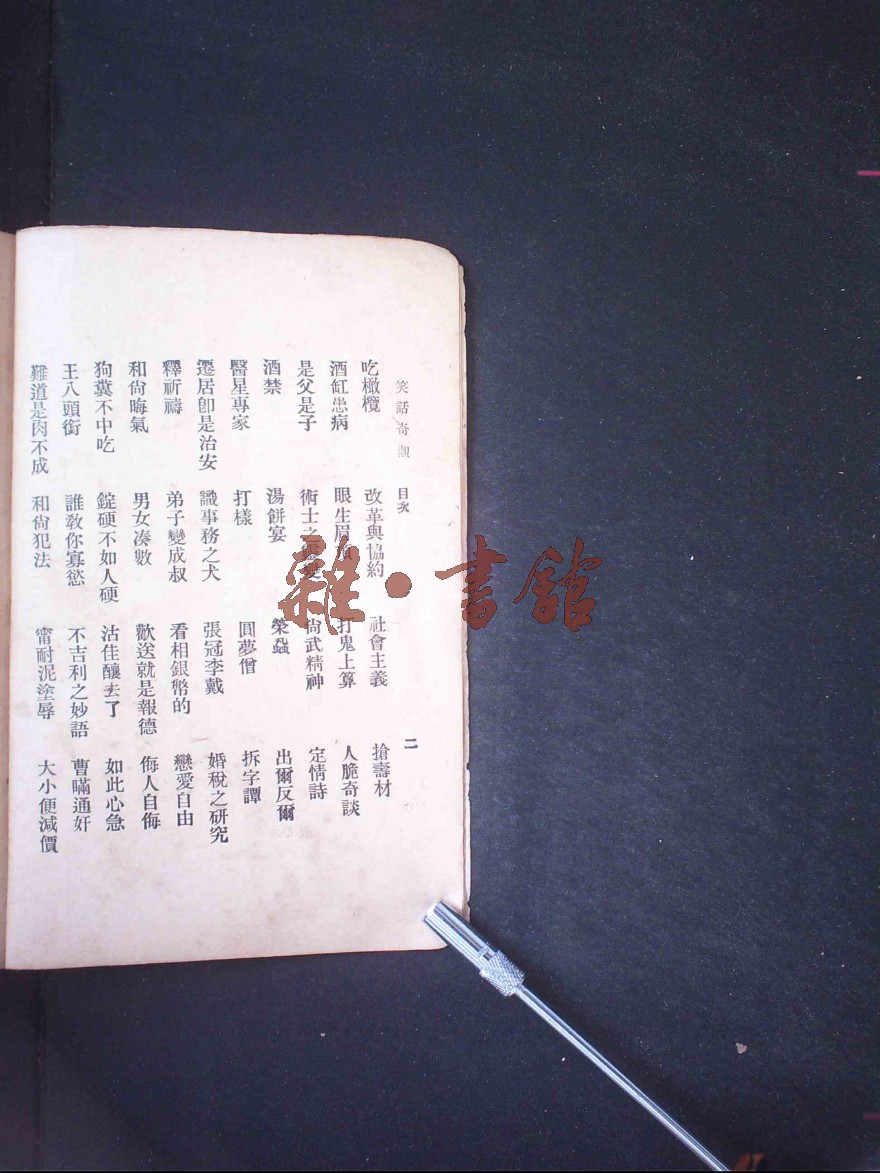 笑話奇觀 目次 二
吃橄欖 改革與協約 社會主義 搶壽材
酒缸患病 眼生眉 打鬼上算 人脆奇談
是父是子 術士之 尙武精神 定情詩
酒禁 湯餅宴 榮蝨 出爾反爾
醫星專家 打樣 圓夢僧 拆字譚
遷居卽是治安 識事務之犬 張冠李戴 婚稅之研究
釋祈禱 弟子變成叔 看相銀幣的 戀愛自由
和尙晦氣 男女凑數 歡送就是報德 侮人自侮
狗糞不中吃 錠硬不如人硬 沽佳釀去了 如此心急
王八頭銜 誰敎你寡慾 不吉利之妙語 曹瞞通奸
難道是肉不成 和尙犯法 甯耐泥塗辱 大小便減價
雜·書館